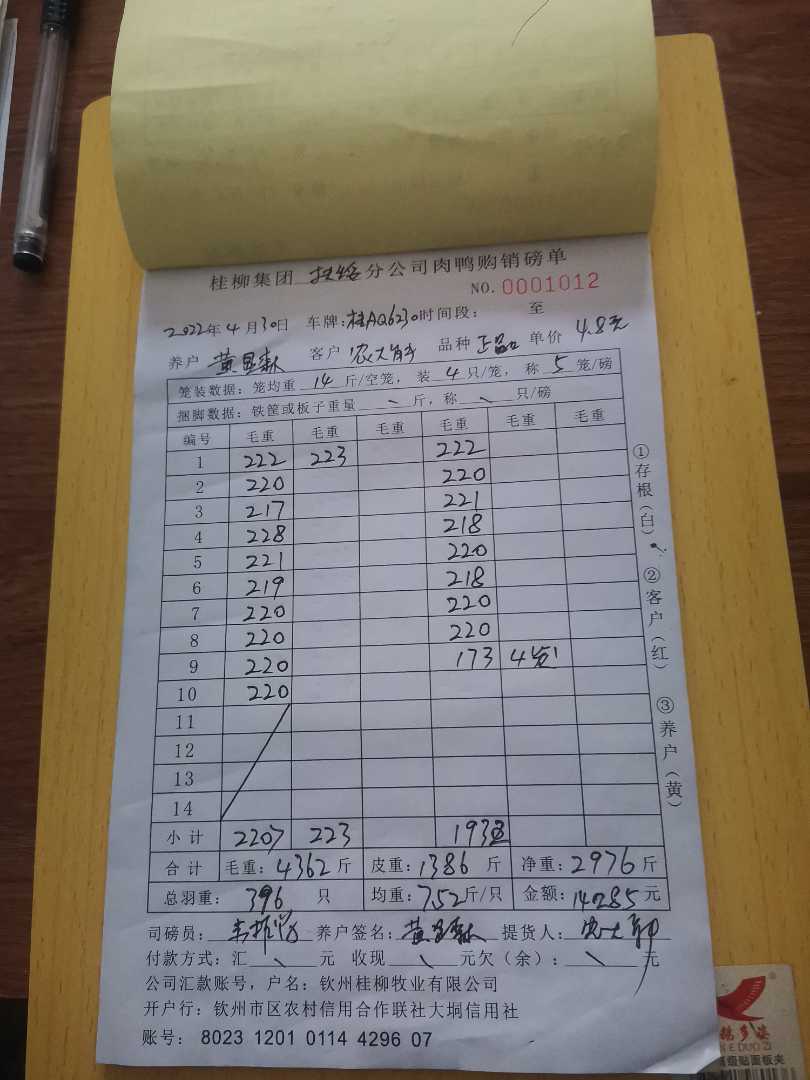 桂柳集团 扶绥 分公司肉鸭购销磅单
NO. 0001012
2022年4月30日 车牌:桂AQ6230 时间段: 至
养户 客户 农大 品种 正品 单价 4.8元
笼装数据:笼均重 14 斤/空笼, 装 4 只/笼, 称 5 笼/磅
捆脚数据:铁筐或板子重量 \ 斤,称 \ 只/磅
编号 毛重 毛重 毛重 毛重 毛重 毛重
1 222 223 222
2 220 220
3 217 221
4 228 218
5 221 220
6 219 218
7 220 220
8 220 220
9 220 173 4笼
10 220
11
12
13
14
小计 2207 223 1932
合计 毛重:4362斤 皮重:1386 斤 净重:2976斤
总羽重: 396 只 均重:7.52斤/只 金额:14285元
司磅员: 养户签名: 提货人:
付款方式:汇 \ 元 收现 \ 元欠(余): \ 元
公司汇款账号,户名:钦州桂柳牧业有限公司
开户行:钦州市区农村信用合作联社大垌信用社
账号: 8023 1201 0114 4296 07
①存根(白)
②客户(红)
③养户(黄)
E DUO ZI
高级贴面板夹